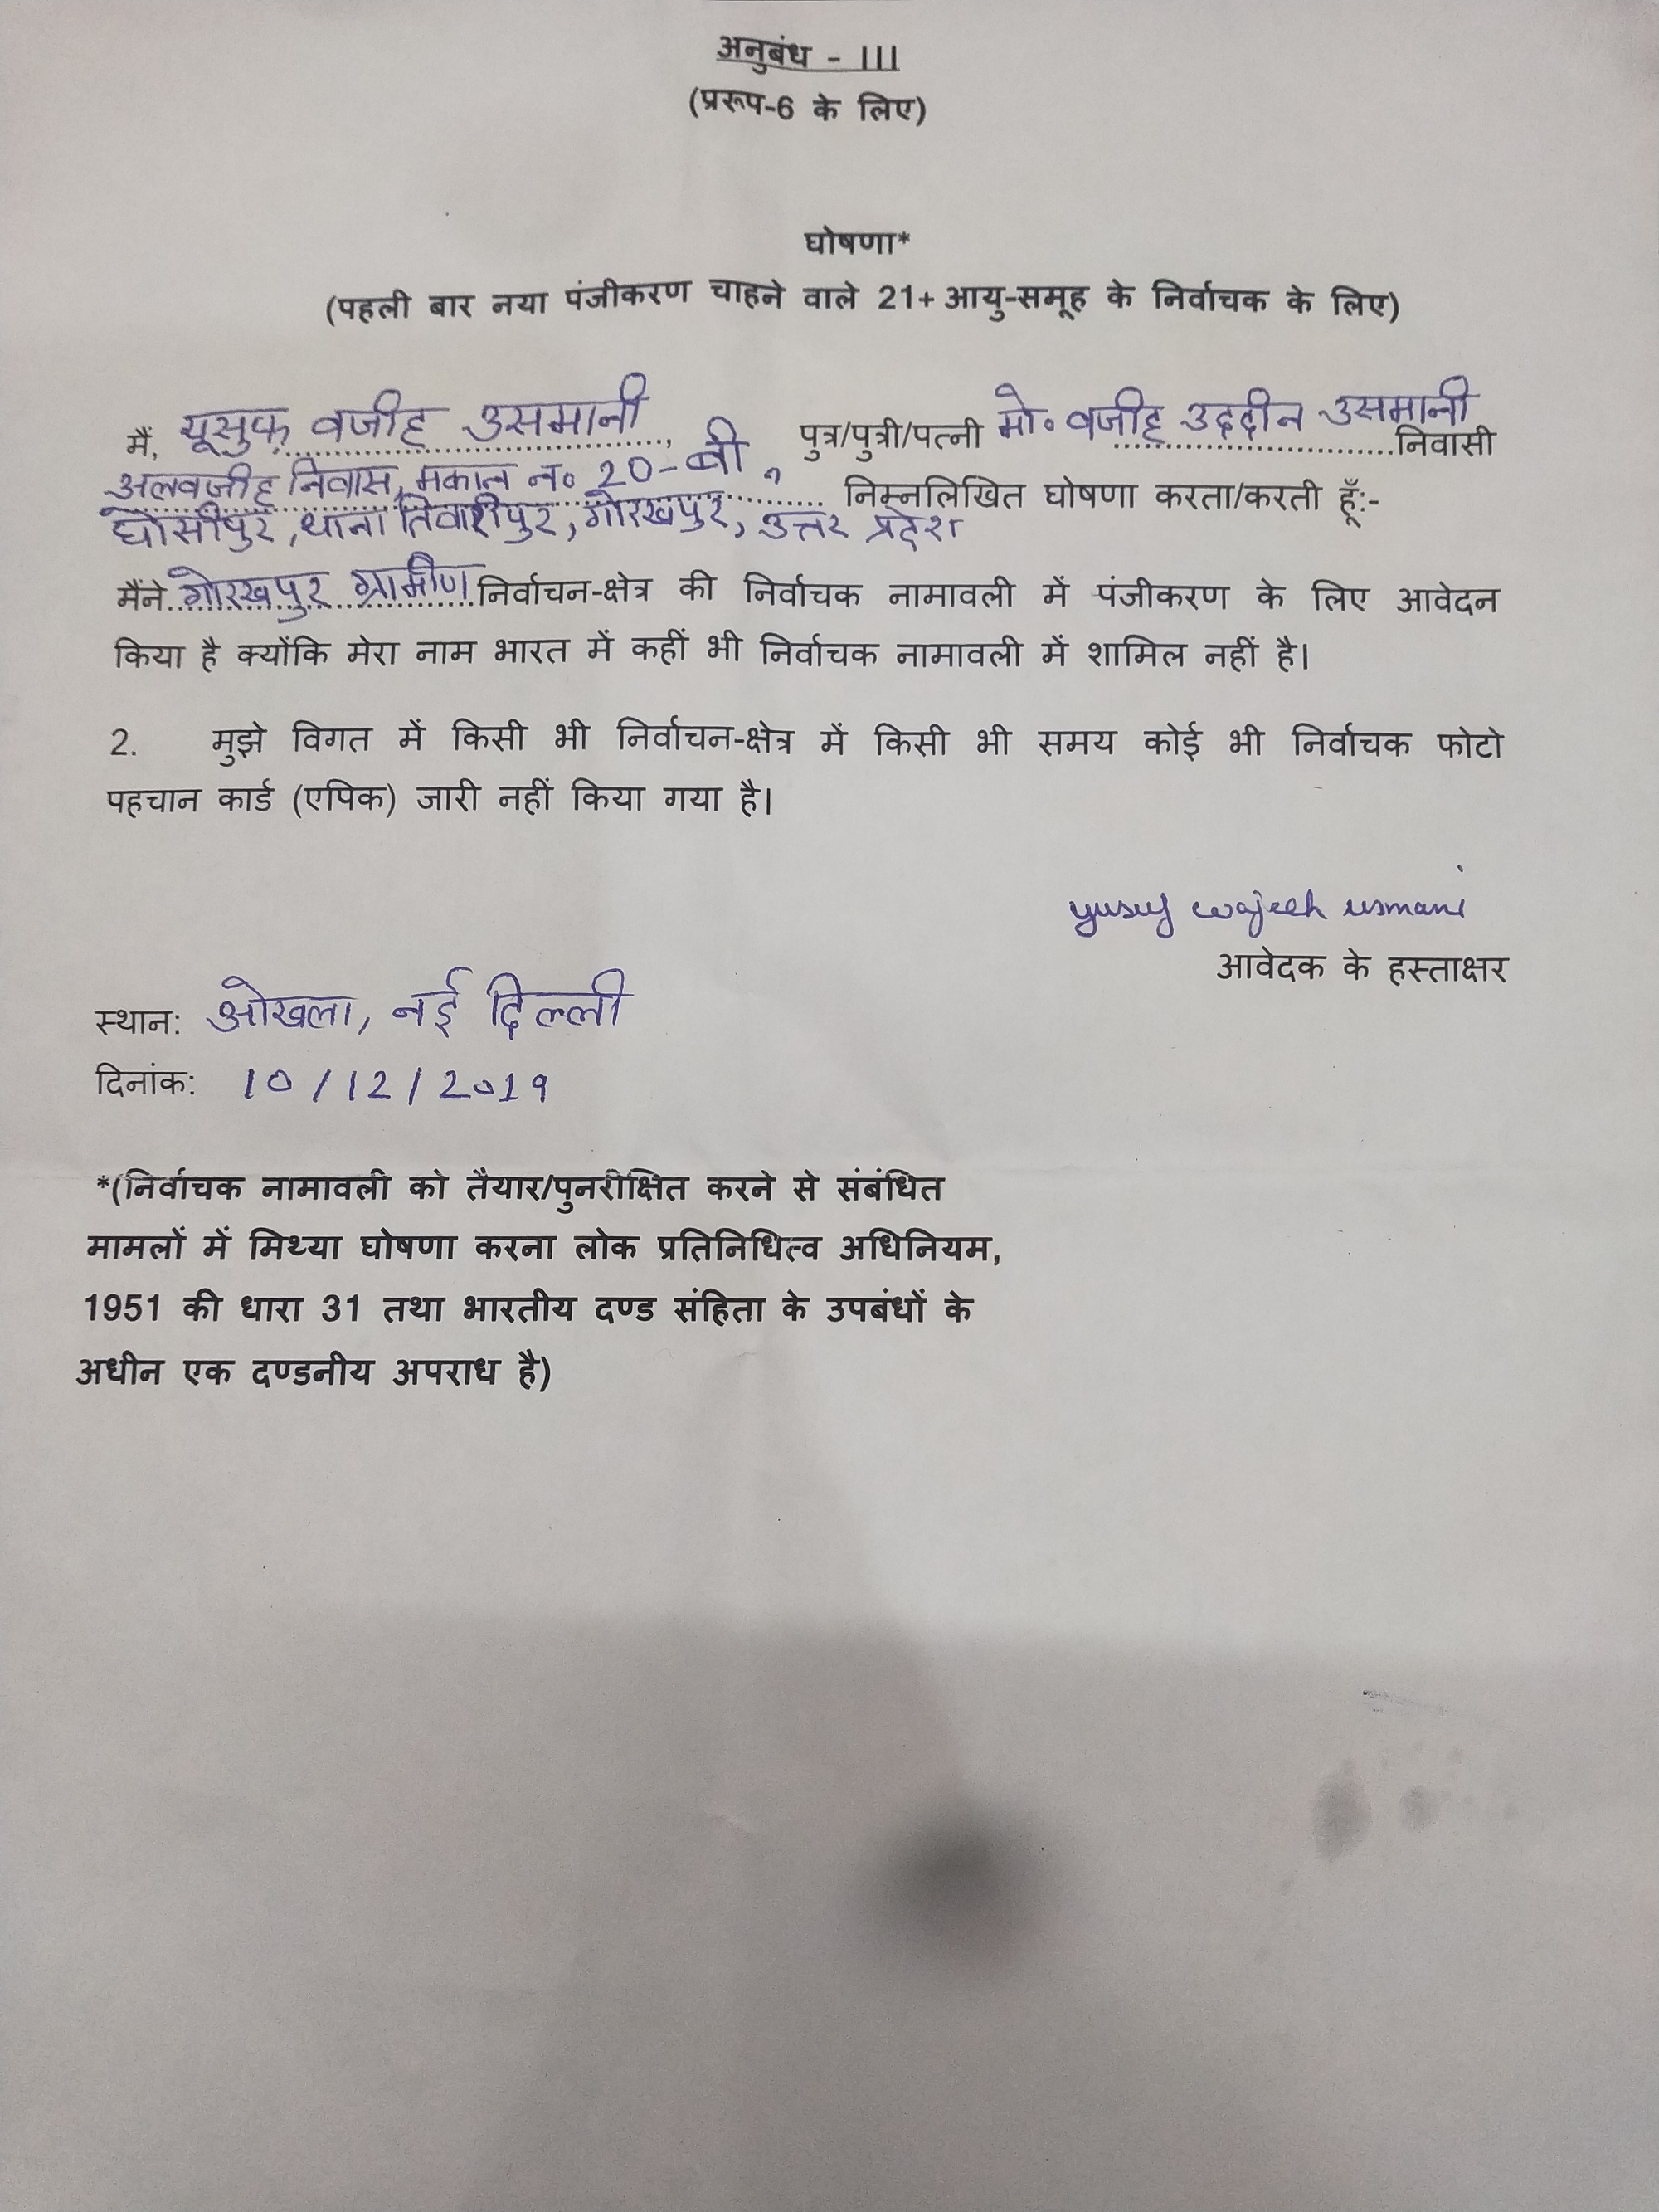 अनुबंध - III
(प्ररूप-6 के लिए)
घोषणा*
(पहली बार नया पंजीकरण चाहने वाले 21+ आयु-समूह के निर्वाचक के लिए)
मैं, यूसुफ़ वजीह उसमानी, पुत्र/पुत्री/पत्नी मो॰ वजीह उद्दीन उसमानी निवासी
अलवजीह निवास, मकान न॰ 20-बी, निम्नलिखित घोषणा करता/करती हूँ:-
घोसीपुर, थाना तिवारीपुर, गोरखपुर, उत्तर प्रदेश
मैंने गोरखपुर ग्रामीण निर्वाचन-क्षेत्र की निर्वाचक नामावली में पंजीकरण के लिए आवेदन
किया है क्योंकि मेरा नाम भारत में कहीं भी निर्वाचक नामावली में शामिल नहीं है।
2. मुझे विगत में किसी भी निर्वाचन-क्षेत्र में किसी भी समय कोई भी निर्वाचक फोटो
पहचान कार्ड (एपिक) जारी नहीं किया गया है।
yusuf wajeeh usmani
आवेदक के हस्ताक्षर
स्थान: ओखला, नई दिल्ली
दिनांक: 10/12/2019
*(निर्वाचक नामावली को तैयार/पुनरीक्षित करने से संबंधित
मामलों में मिथ्या घोषणा करना लोक प्रतिनिधित्व अधिनियम,
1951 की धारा 31 तथा भारतीय दण्ड संहिता के उपबंधों के
अधीन एक दण्डनीय अपराध है)